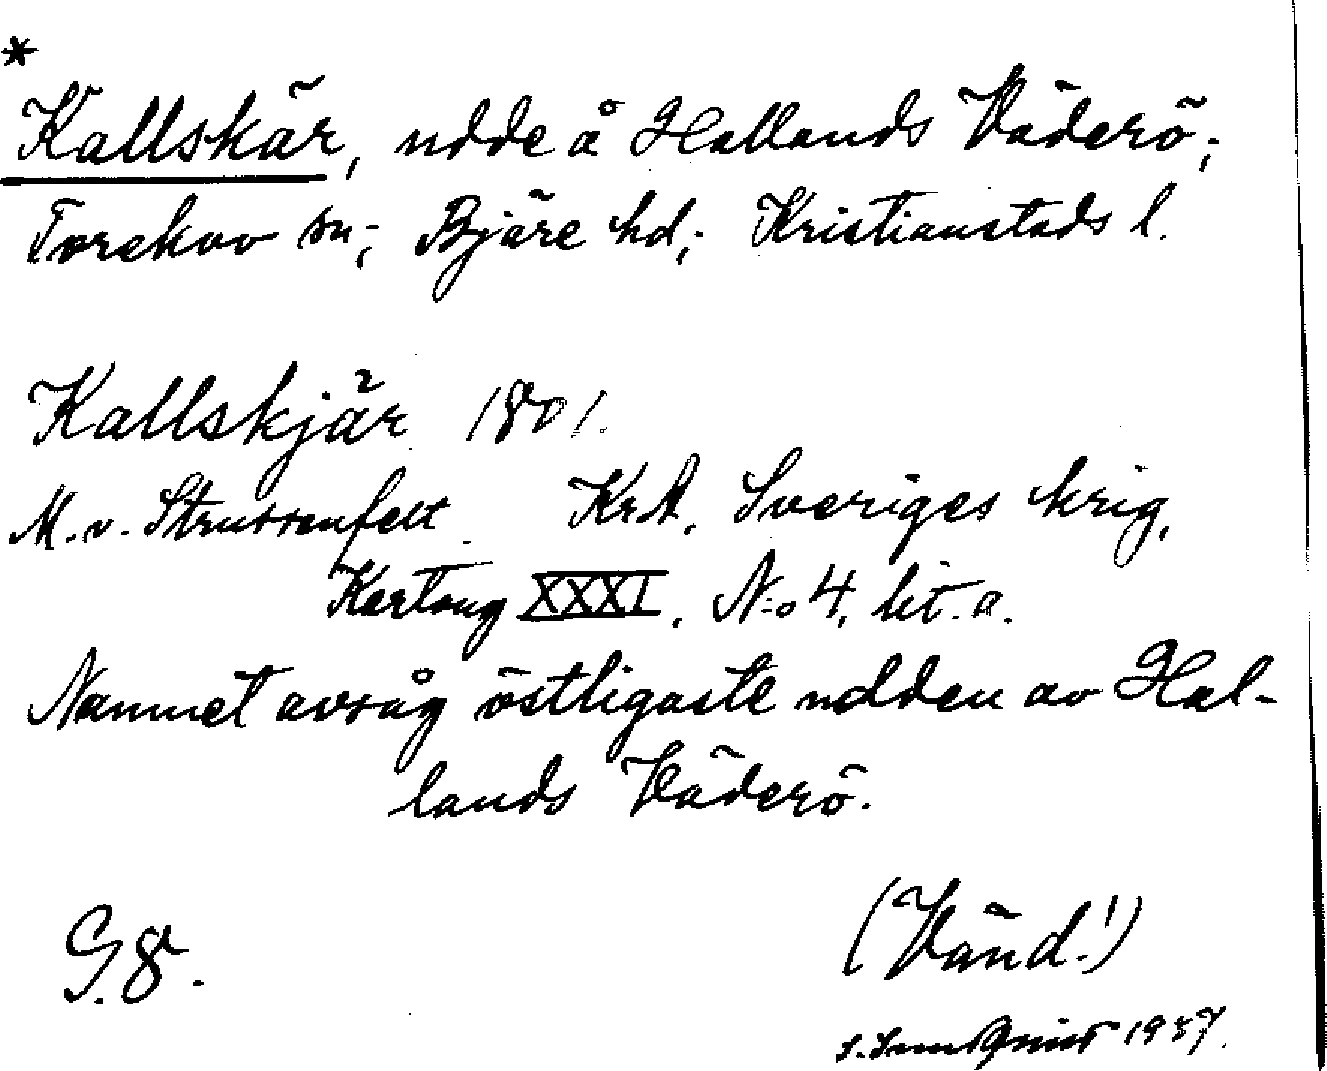 *
Kallskär, udde å Hallands Väderö;
Torekov sn; Bjäre hd; Kristianstads l.
Kallskjär 1801.
M. v. Strussenfelt. Kr.A. Sveriges krig,
Kartong XXXI. N:o 4, lit. a.
Namnet avsåg östligaste udden av Hal-
lands Väderö.
G. 8.
(Vänd!)
1937.